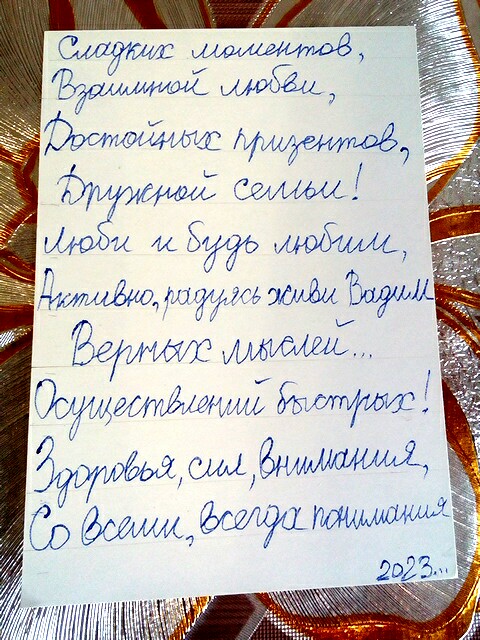 Сладких моментов,
Взаимной любви,
Достойных призентов,
Дружной семьи!
Люби и будь любим,
Активно, радуясь живи Вадим
Верных мыслей...
Осуществлений быстрых!
Здоровья, сил, внимания,
Со всеми, всегда понимания
2023...